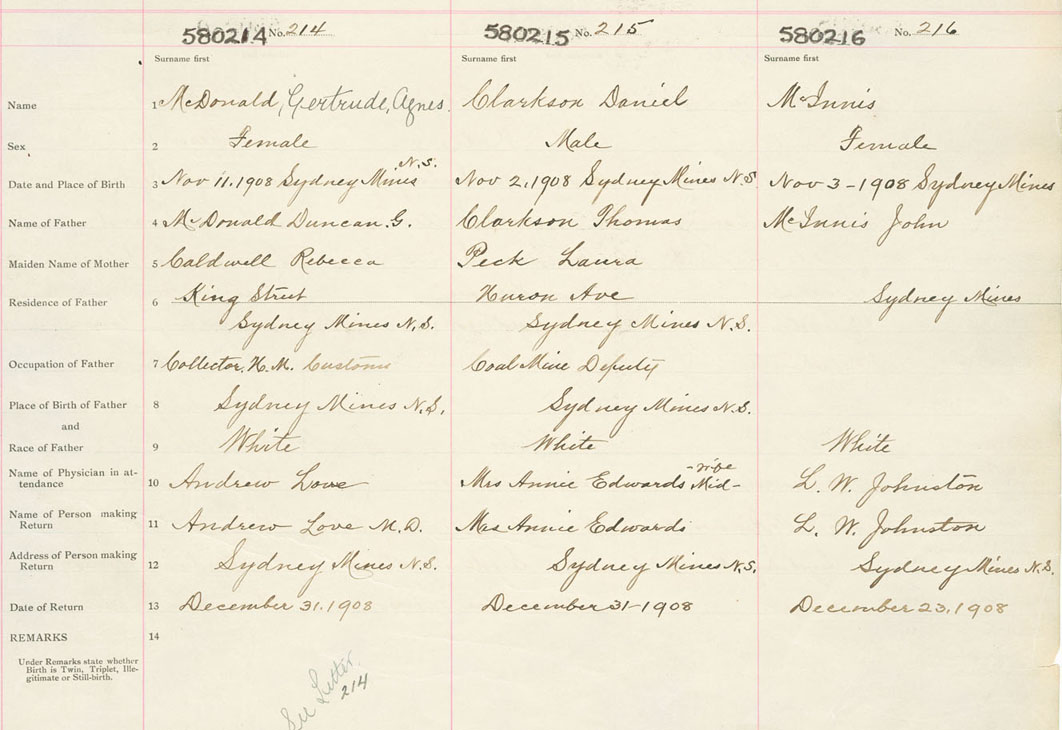 580214 No. 214 580215 No. 215 580216 No. 216
Surname first Surname first Surname first
Name 1 McDonald, Gertrude, Agnes. Clarkson Daniel McInnis
Sex 2 Female Male Female
N.S.
Date and Place of Birth 3 Nov 11, 1908 Sydney Mines Nov 2, 1908 Sydney Mines N.S Nov 3-1908 Sydney Mines
Name of Father 4 McDonald Duncan. G. Clarkson Thomas McInnis John
Maiden Name of Mother 5 Caldwell Rebecca Peck Laura
Residence of Father 6 King Street Huron Ave Sydney Mines
Sydney Mines N.S. Sydney Mines N.S.
Occupation of Father 7 Collector, H.M. Customs Coal Mine Deputy
Place of Birth of Father 8 Sydney Mines N.S. Sydney Mines N.S.
and
Race of Father 9 White White White
-wife
Name of Physician in at-
tendance 10 Andrew Love Mrs Annie Edwards Mid- L. W. Johnston
Name of Person making
Return 11 Andrew Love M.D. Mrs Annie Edwards L. W. Johnston
Address of Person making
Return 12 Sydney Mines N.S. Sydney Mines N.S. Sydney Mines N.S.
Date of Return 13 December 31, 1908 December 31-1908 December 23, 1908
REMARKS 14
Under Remarks state whether
Birth is Twin, Triplet, Ille-
gitimate or Still-birth.
See Letter
214